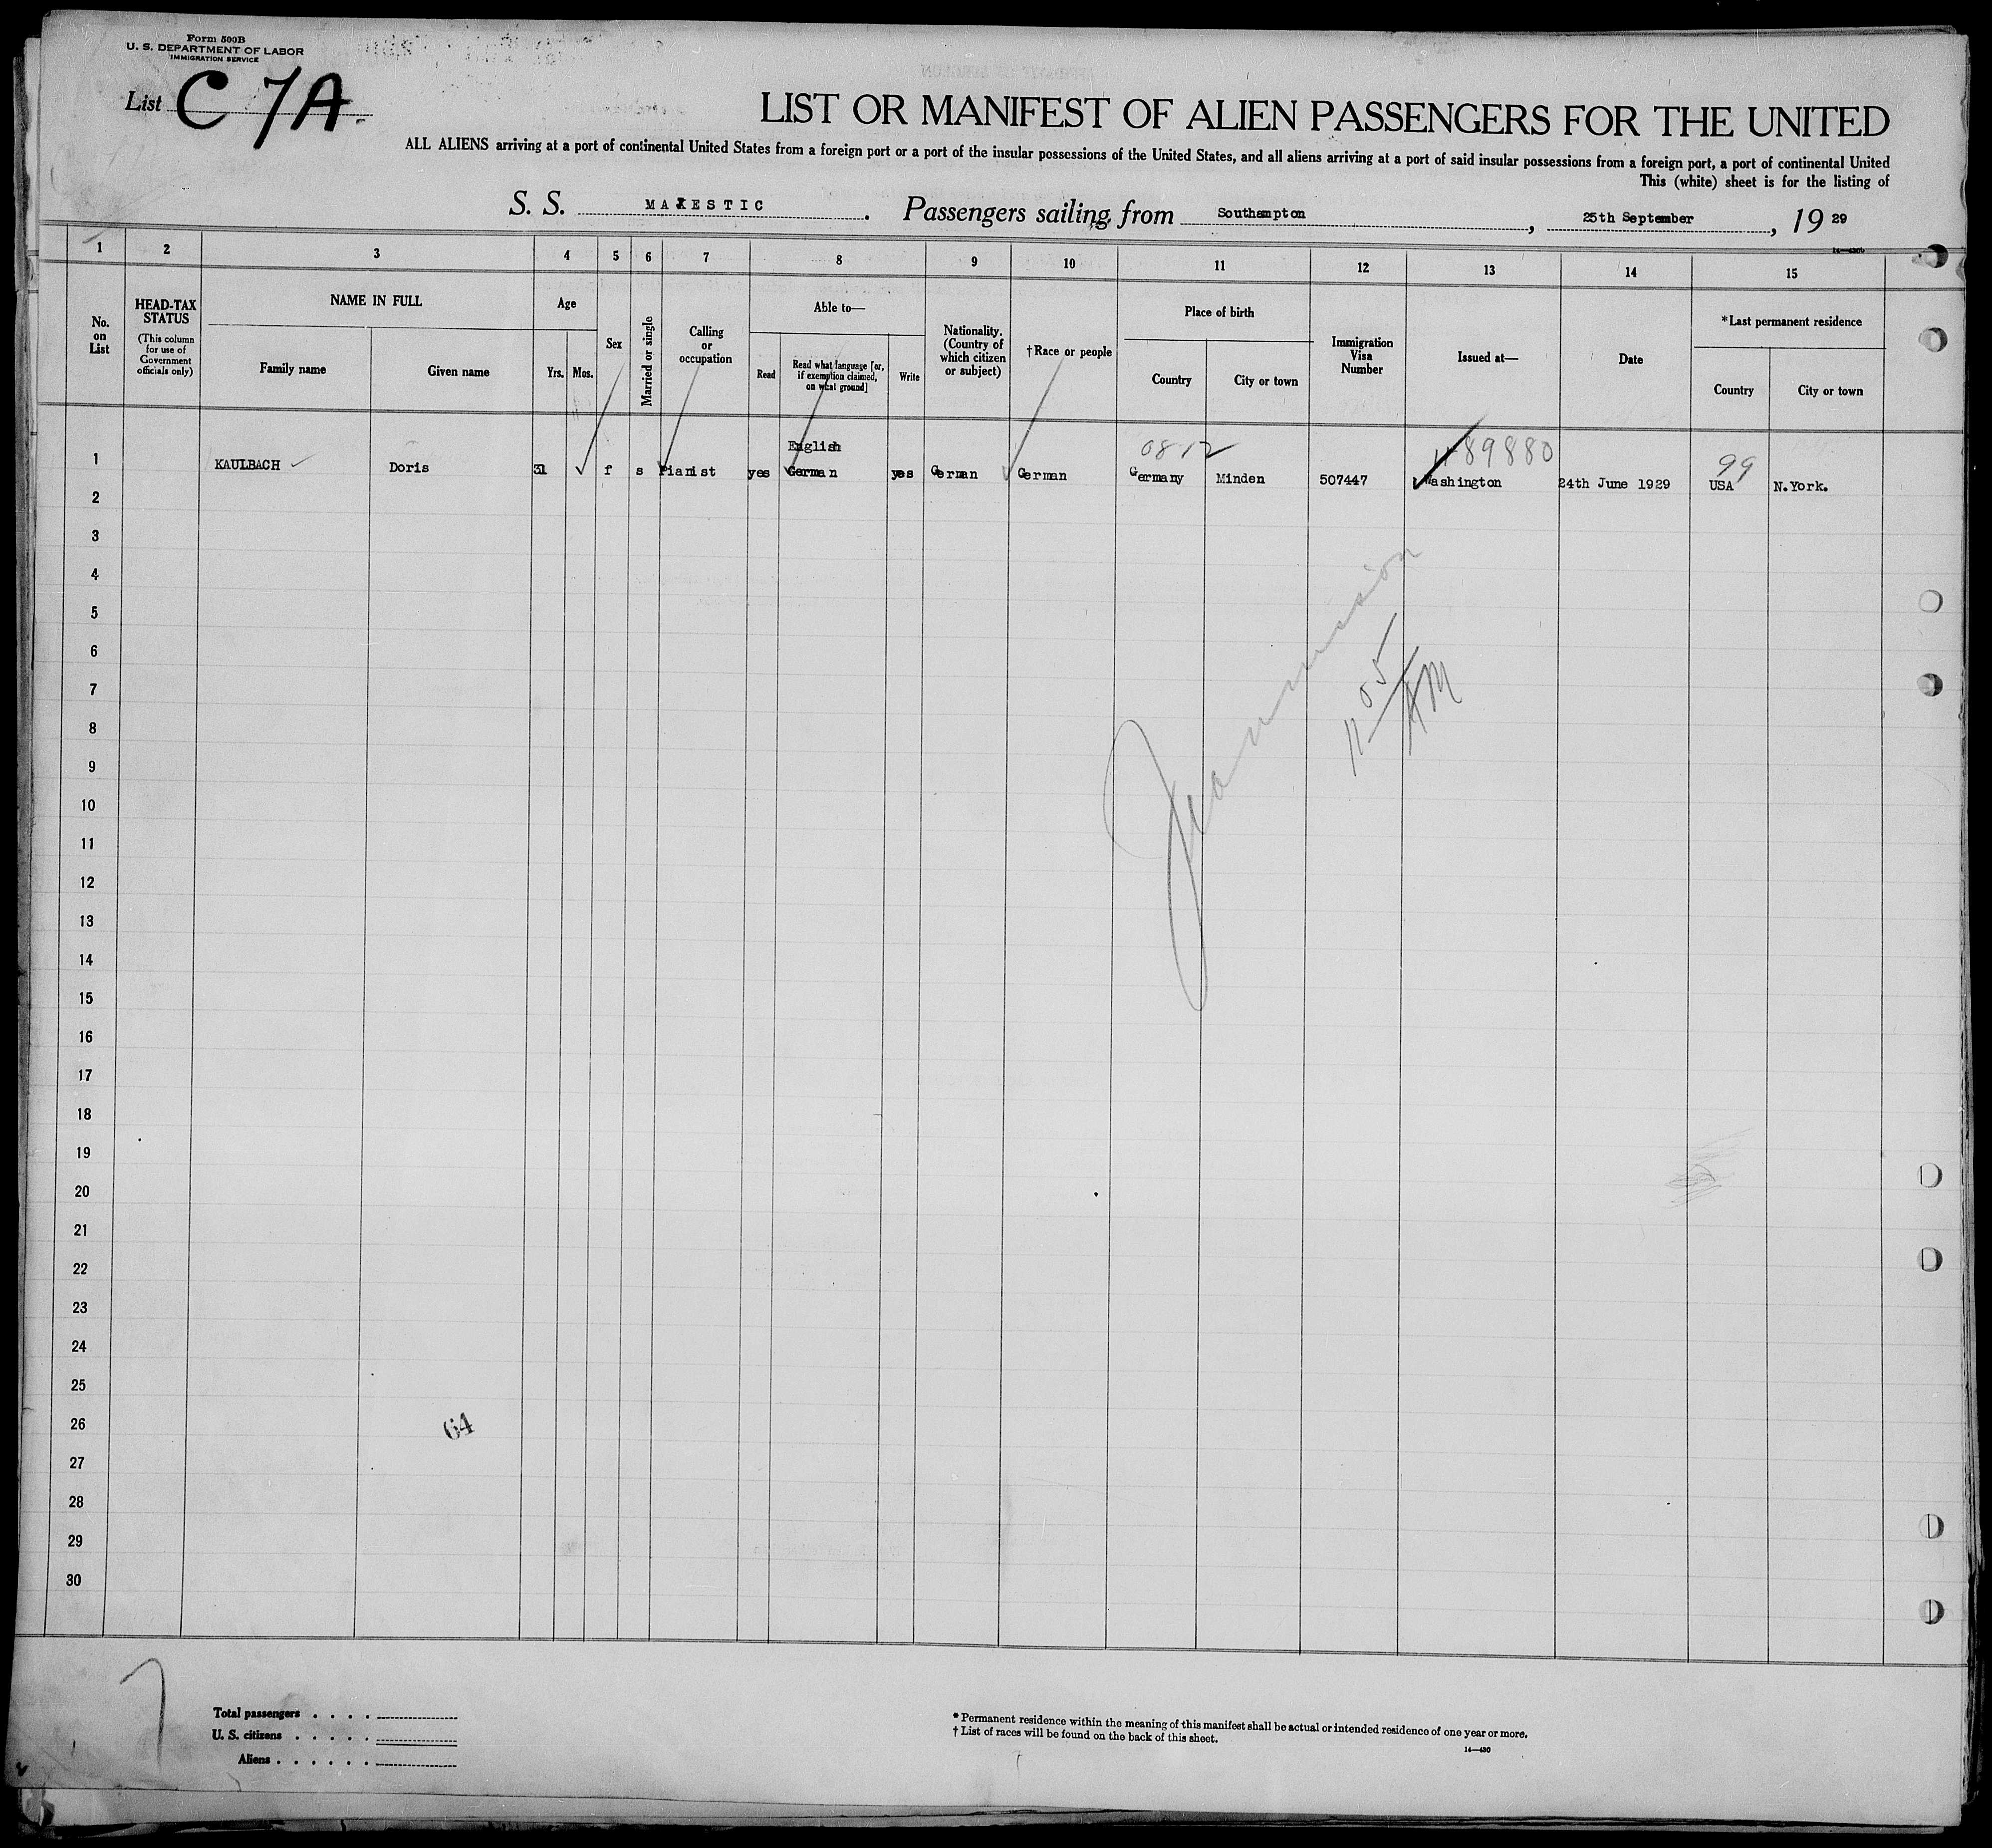 Form 500B
U. S. DEPARTMENT OF LABOR
IMMIGRATION SERVICE
List C 7A.
LIST OR MANIFEST OF ALIEN PASSENGERS FOR THE UNITED
ALL ALIENS arriving at a port of continental United States from a foreign port or a port of the insular possessions of the United States, and all aliens arriving at a port of said insular possessions from a foreign port, a port of continental United
This (white) sheet is for the listing of
S. S. MAJESTIC. Passengers sailing from Southampton, 25th September, 19 29
1 2 3 4 5 6 7 8 9 10 11 12 13 14 15
No. on List
HEAD-TAX STATUS
(This column for use of Government officials only)
NAME IN FULL
Family name
Given name
Age
Yrs. Mos.
Sex
Married or single
Calling or occupation
Able to—
Read
Read what language [or, if exemption claimed, on what ground]
Write
Nationality. (Country of which citizen or subject)
†Race or people
Place of birth
Country
City or town
Immigration Visa Number
Issued at—
Date
*Last permanent residence
Country
City or town
English
0812
489880
99
1 KAULBACH Doris 31 f s Pianist yes German yes German German Germany Minden 507447 Washington 24th June 1929 USA N.York.
2
3
4
5
6
7
8
9
10
11
12
13
14
15
16
17
18
19
20
21
22
23
24
25
26
27
28
29
30
11 05 AM
64
7
Total passengers . . . .
U. S. citizens . . . . .
Aliens . . . . . .
* Permanent residence within the meaning of this manifest shall be actual or intended residence of one year or more.
† List of races will be found on the back of this sheet.
14—430